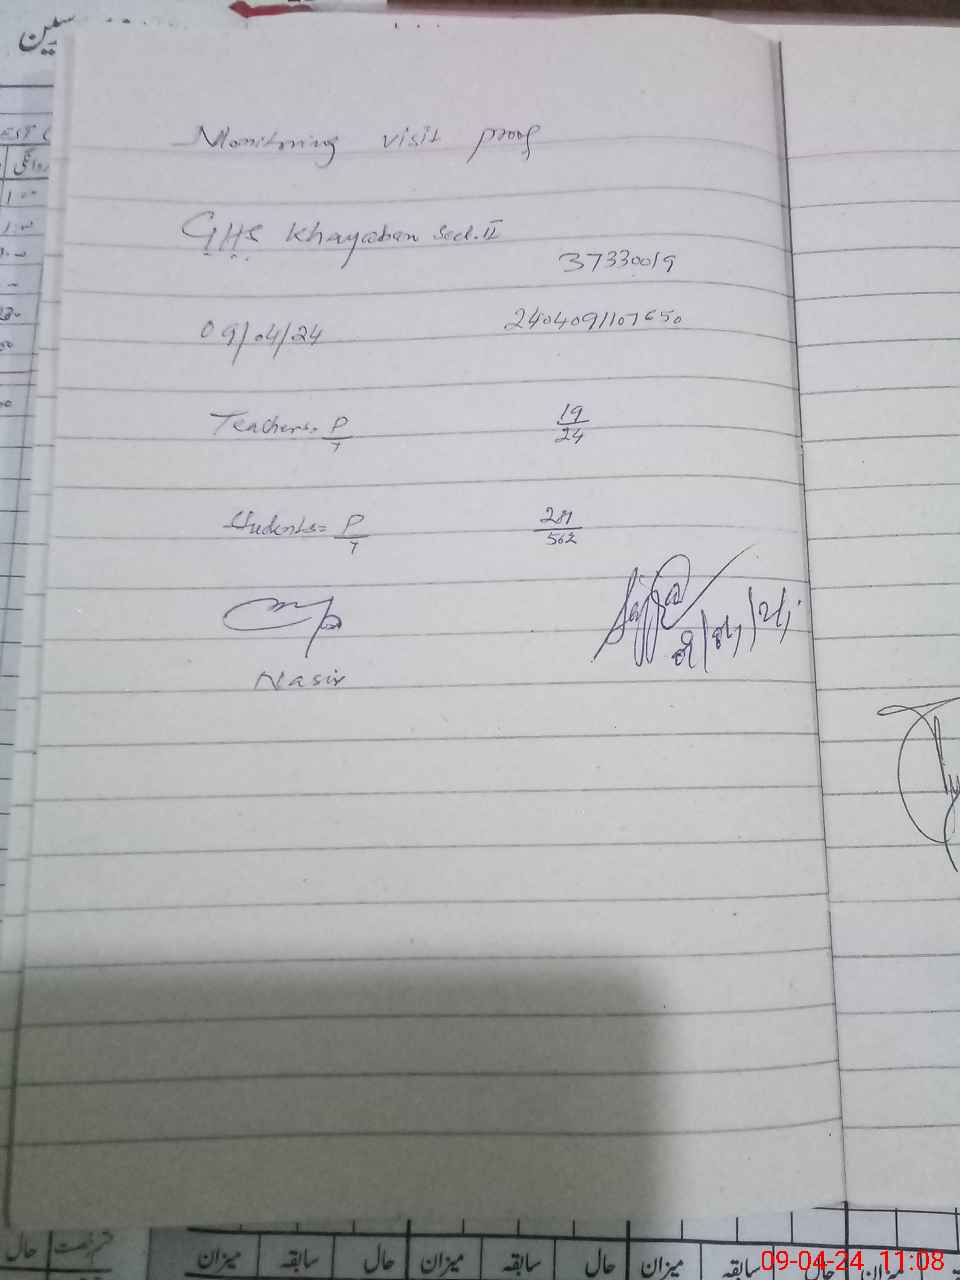 سفین
EST
روانگی
Monitoring visit proof
G.H.S Khayaban Sect. II
37330019
09/04/24
2404091107650
Teachers = P/T
19/24
Students = P/T
281/562
Nasir
حال
میزان سابقہ حال میزان سابقہ حال میزان سابقہ حال میزان
09-04-24 11:08